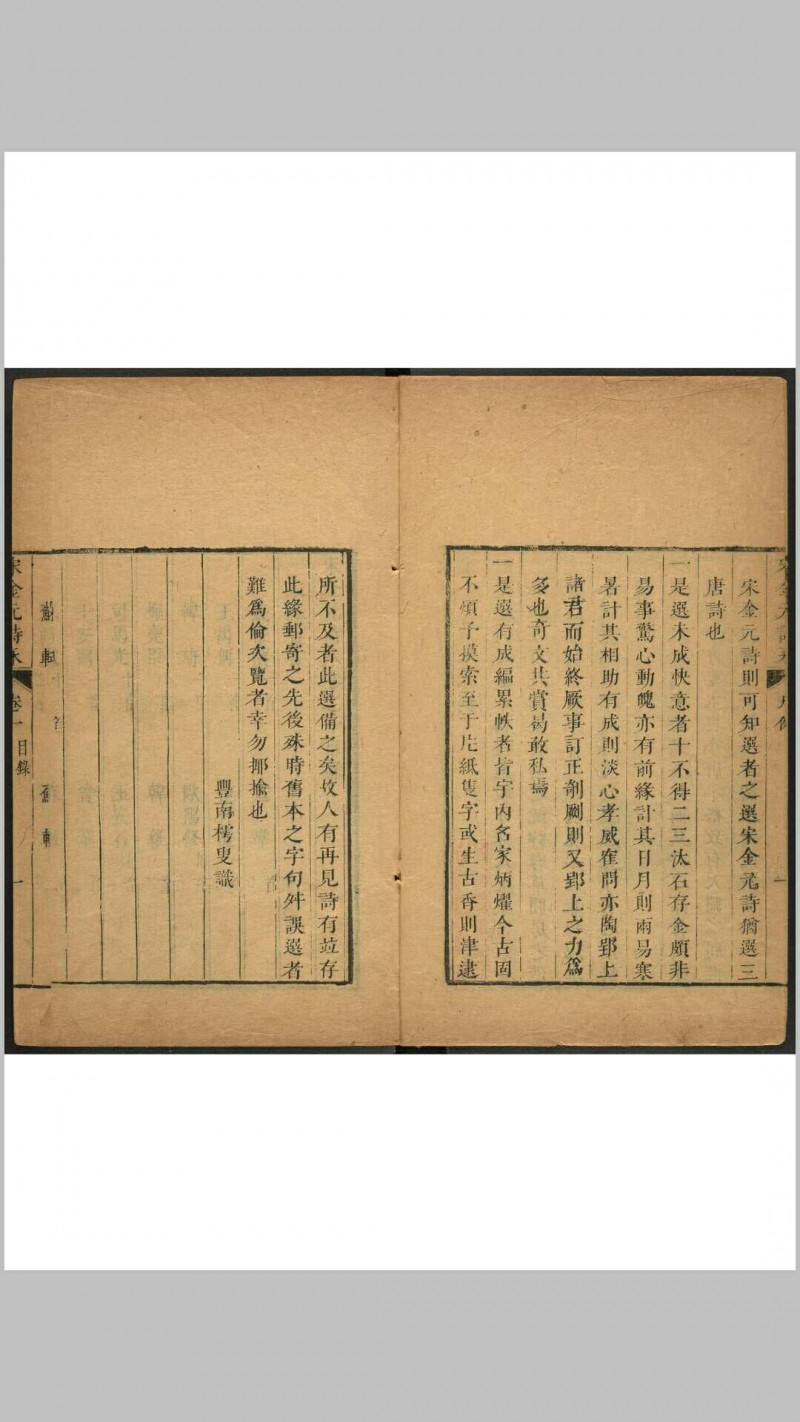 宋金元詩則可知選者之選宋金元詩猶選三
唐詩也
一是選未成快意者十不得二三汰石存金頗非
易事驚心動魄亦有前緣計其日月則兩易寒
暑計其相助有成則淡心孝威寉問亦陶郢上
諸君而始終厥事訂正剞劂則又郢上之力爲
多也奇文共賞曷敢私焉
一是選有成編累帙者皆宇內名家炳燿今古固
不煩予摸索至于片紙隻字或生古香則津逮
所不及者此選備之矣攷人有再見詩有竝存
此緣郵寄之先後殊時舊本之字句舛誤選者
難爲倫次覽者幸勿揶揄也
豐南樗叟識
宋金元詩永
卷一
目錄
一